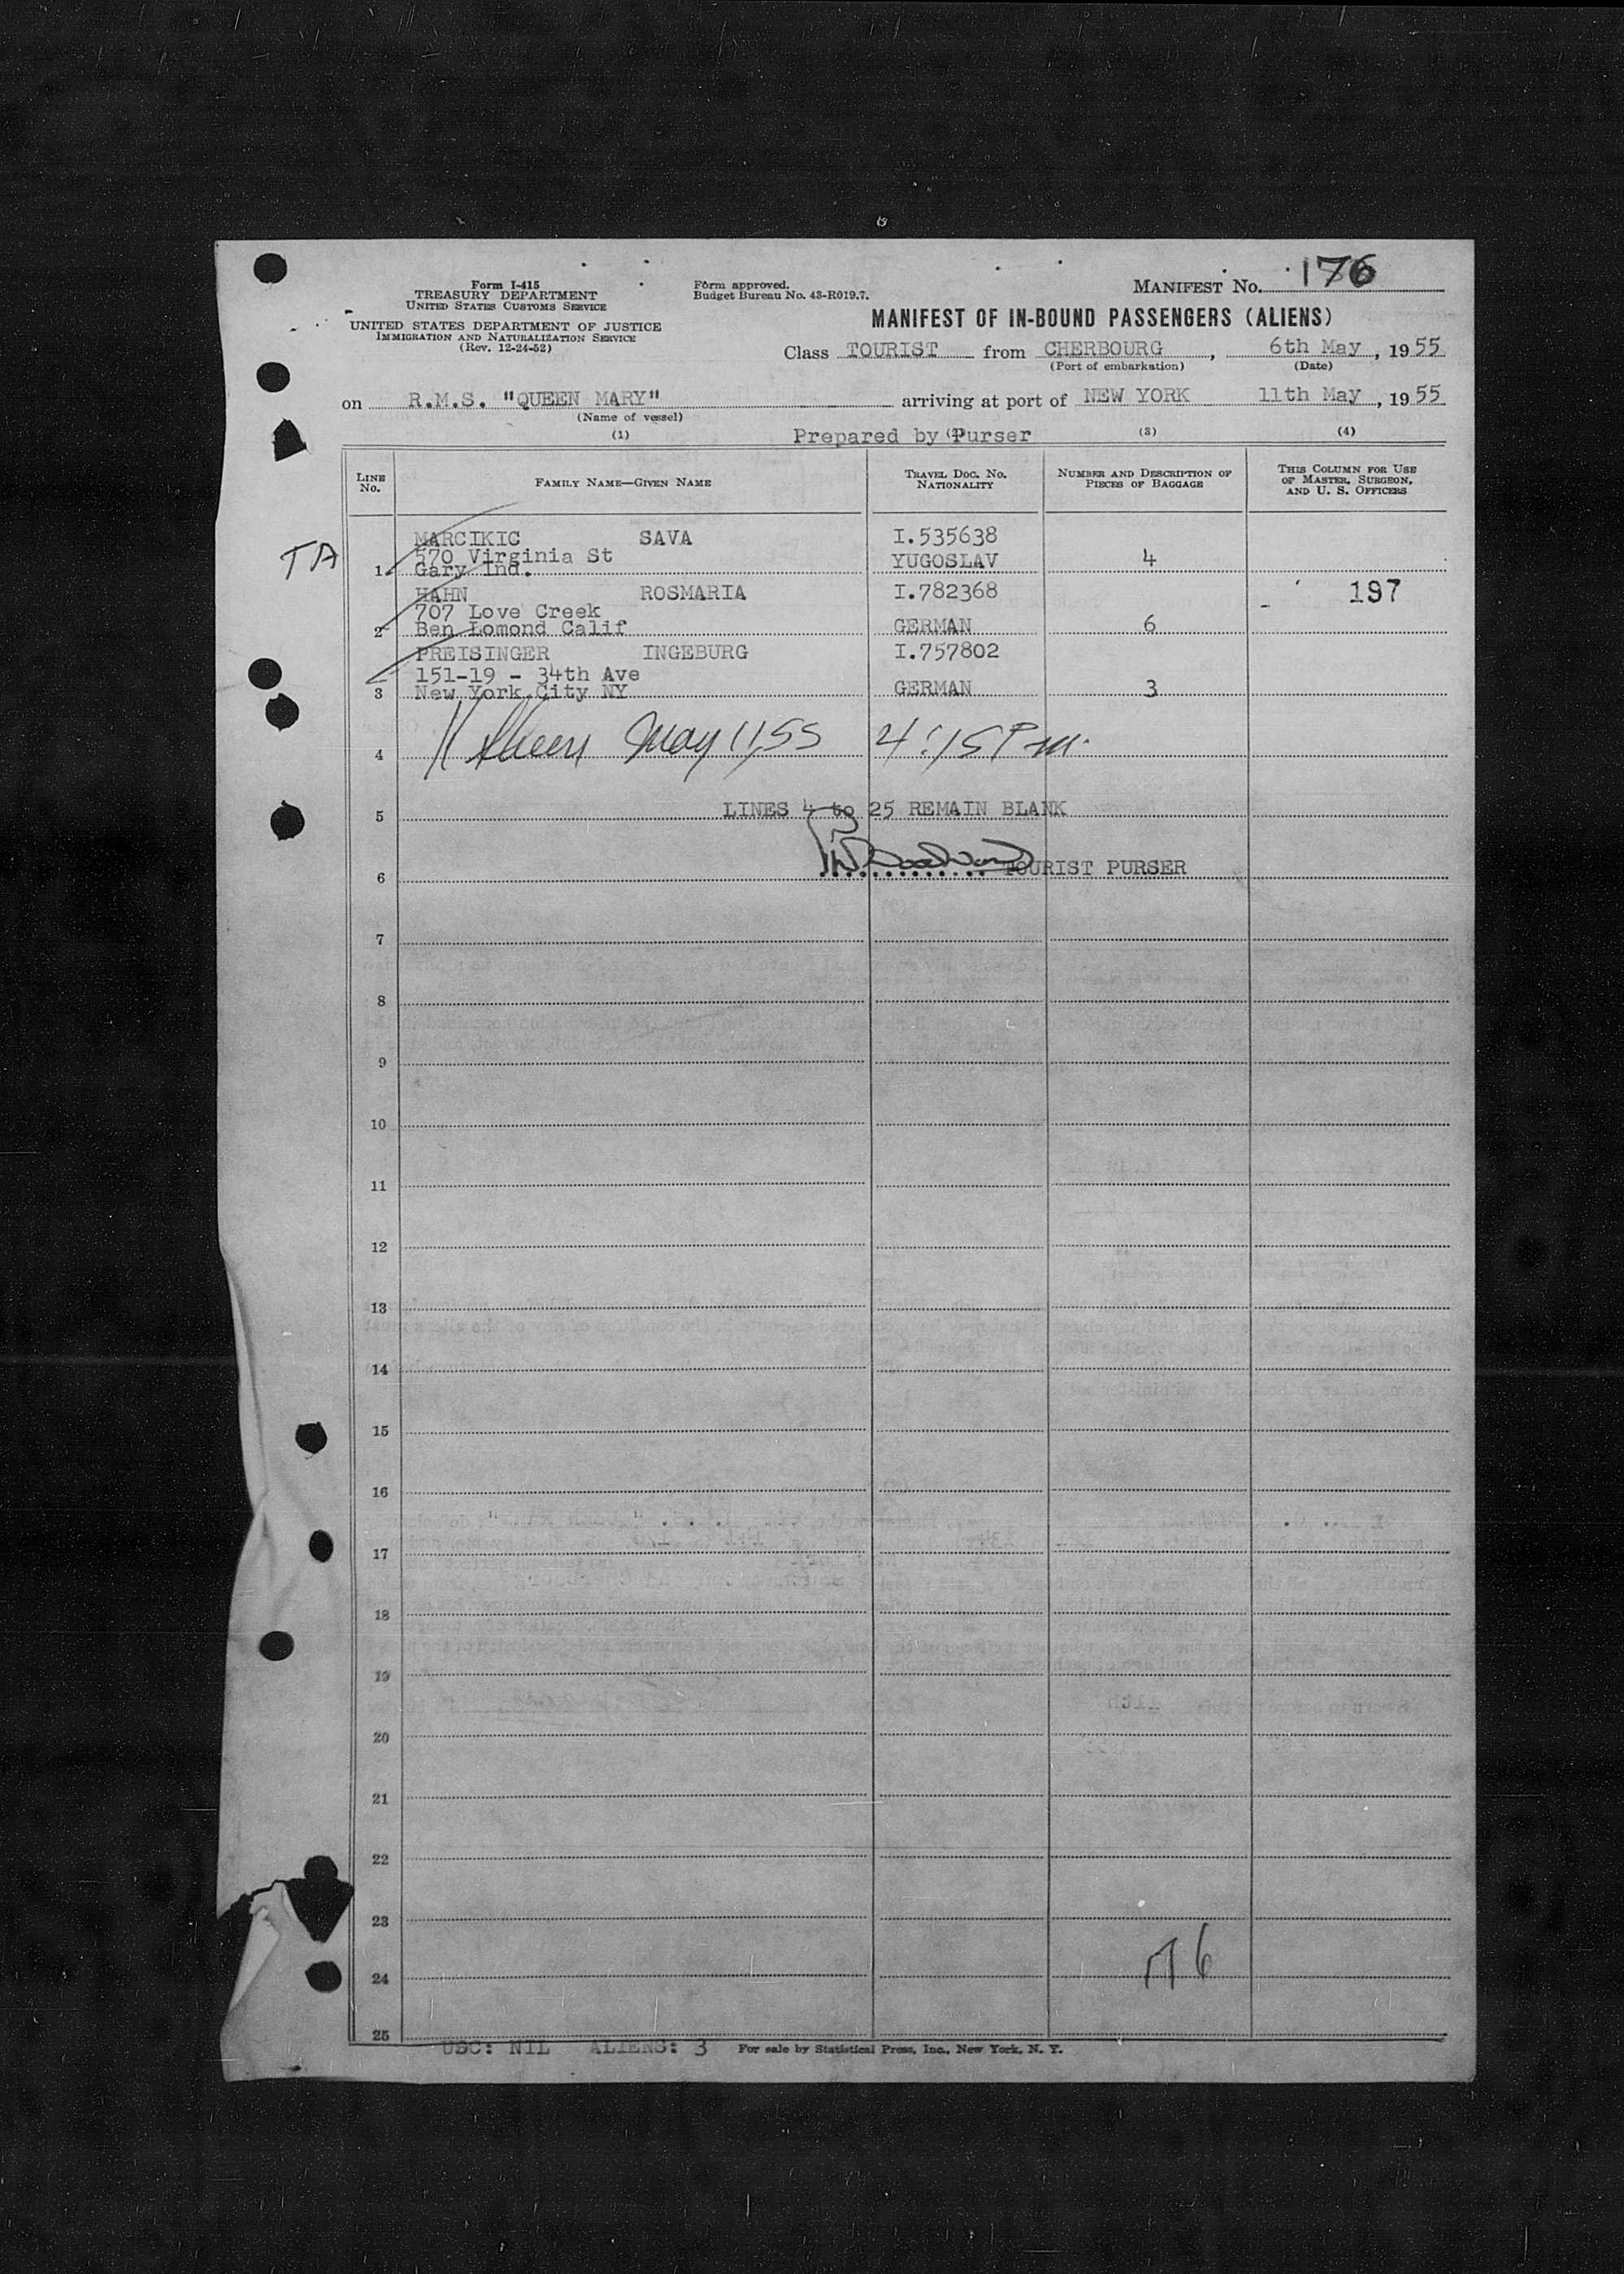 Form I-415
TREASURY DEPARTMENT
UNITED STATES CUSTOMS SERVICE
UNITED STATES DEPARTMENT OF JUSTICE
IMMIGRATION AND NATURALIZATION SERVICE
(Rev. 12-24-52)
Form approved.
Budget Bureau No. 43-R019.7.
MANIFEST NO. 176
MANIFEST OF IN-BOUND PASSENGERS (ALIENS)
Class TOURIST from CHERBOURG, 6th May, 1955
(Port of embarkation) (Date)
on R.M.S. "QUEEN MARY" arriving at port of NEW YORK 11th May, 1955
(Name of vessel)
(1) Prepared by Purser (3) (4)
LINE No. FAMILY NAME—GIVEN NAME TRAVEL DOC. NO. NATIONALITY NUMBER AND DESCRIPTION OF PIECES OF BAGGAGE THIS COLUMN FOR USE OF MASTER, SURGEON, AND U. S. OFFICERS
MARCIKIC SAVA I.535638
TA 570 Virginia St YUGOSLAV 4
1 Gary Ind.
HAHN ROSMARIA I.782368 197
707 Love Creek
2 Ben Lomond Calif GERMAN 6
PREISINGER INGEBURG I.757802
151-19 - 34th Ave
3 New York City NY GERMAN 3
4 May 11, 55 4:15 Pm.
5 LINES 4 to 25 REMAIN BLANK
6 TOURIST PURSER
7
8
9
10
11
12
13
14
15
16
17
18
19
20
21
22
23
24 176
25
USC: NIL ALIENS: 3 For sale by Statistical Press, Inc., New York, N. Y.